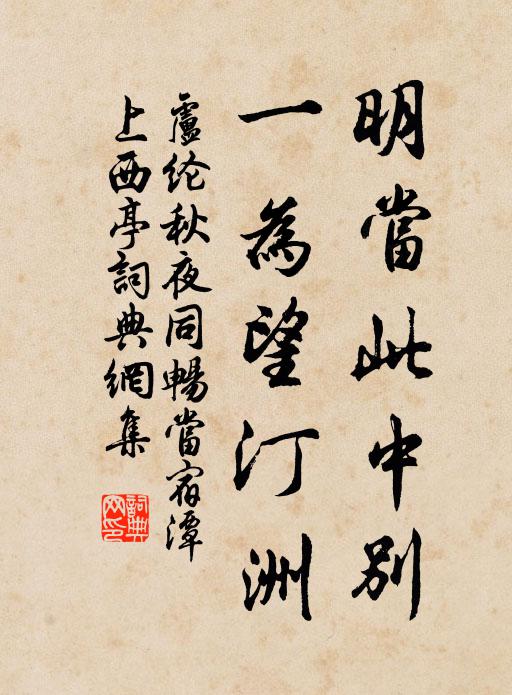 明當此中別
一為望汀洲
盧纶秋夜同暢當宿潭
上西亭詞典網集
詞典网印